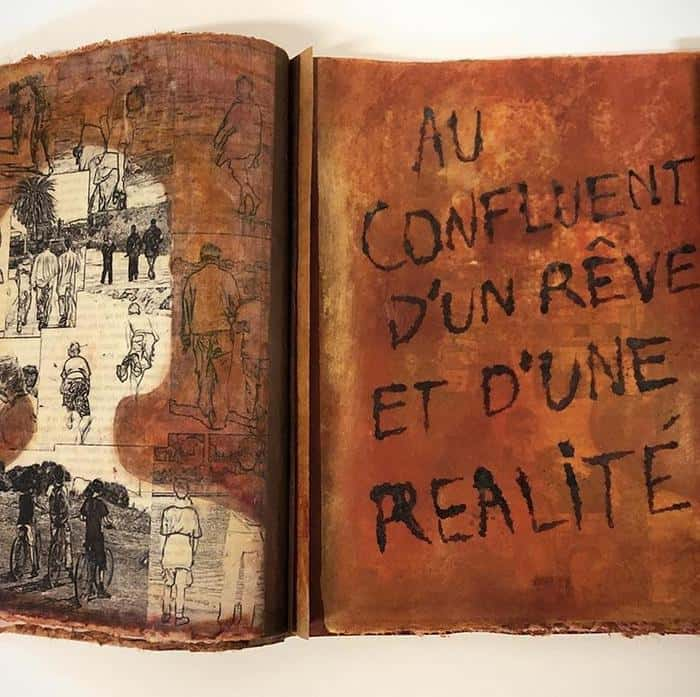 AU
CONFLUENT
D'UN RÊVE
ET D'UNE
REALITÉ